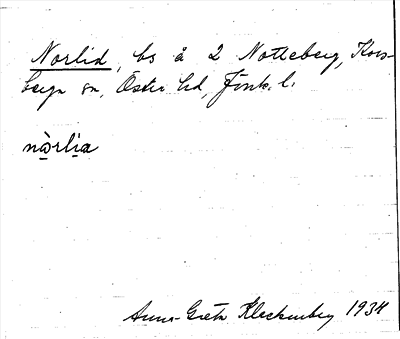 Norlid, bs å 2 Notteberg, Kors-
berga sn, Östra hd, Jönk. l.
nò̤rli̤a
Anna-Greta Kleckenberg 1934